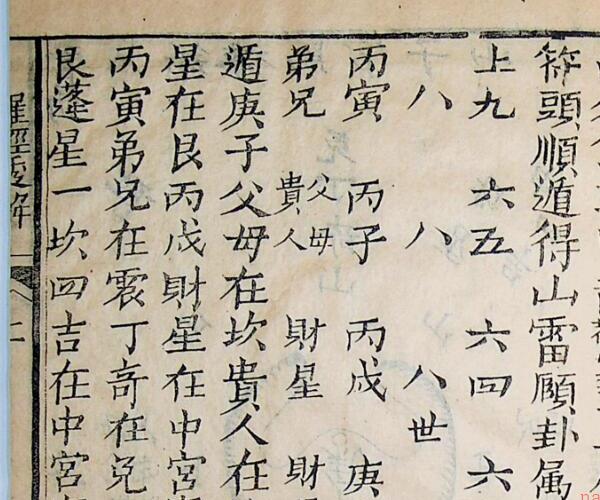 符頭順遁得山雷頤卦属
上九 六五 六四 六
八 八 八世
丙寅 丙子 丙戌 庚
弟兄 父母貴人 財星 財
遁庚子父母在坎貴人在
星在艮丙戌財星在中宮
丙寅弟兄在震丁奇在兌
艮蓬星一坎四吉在中宮
羅經 解